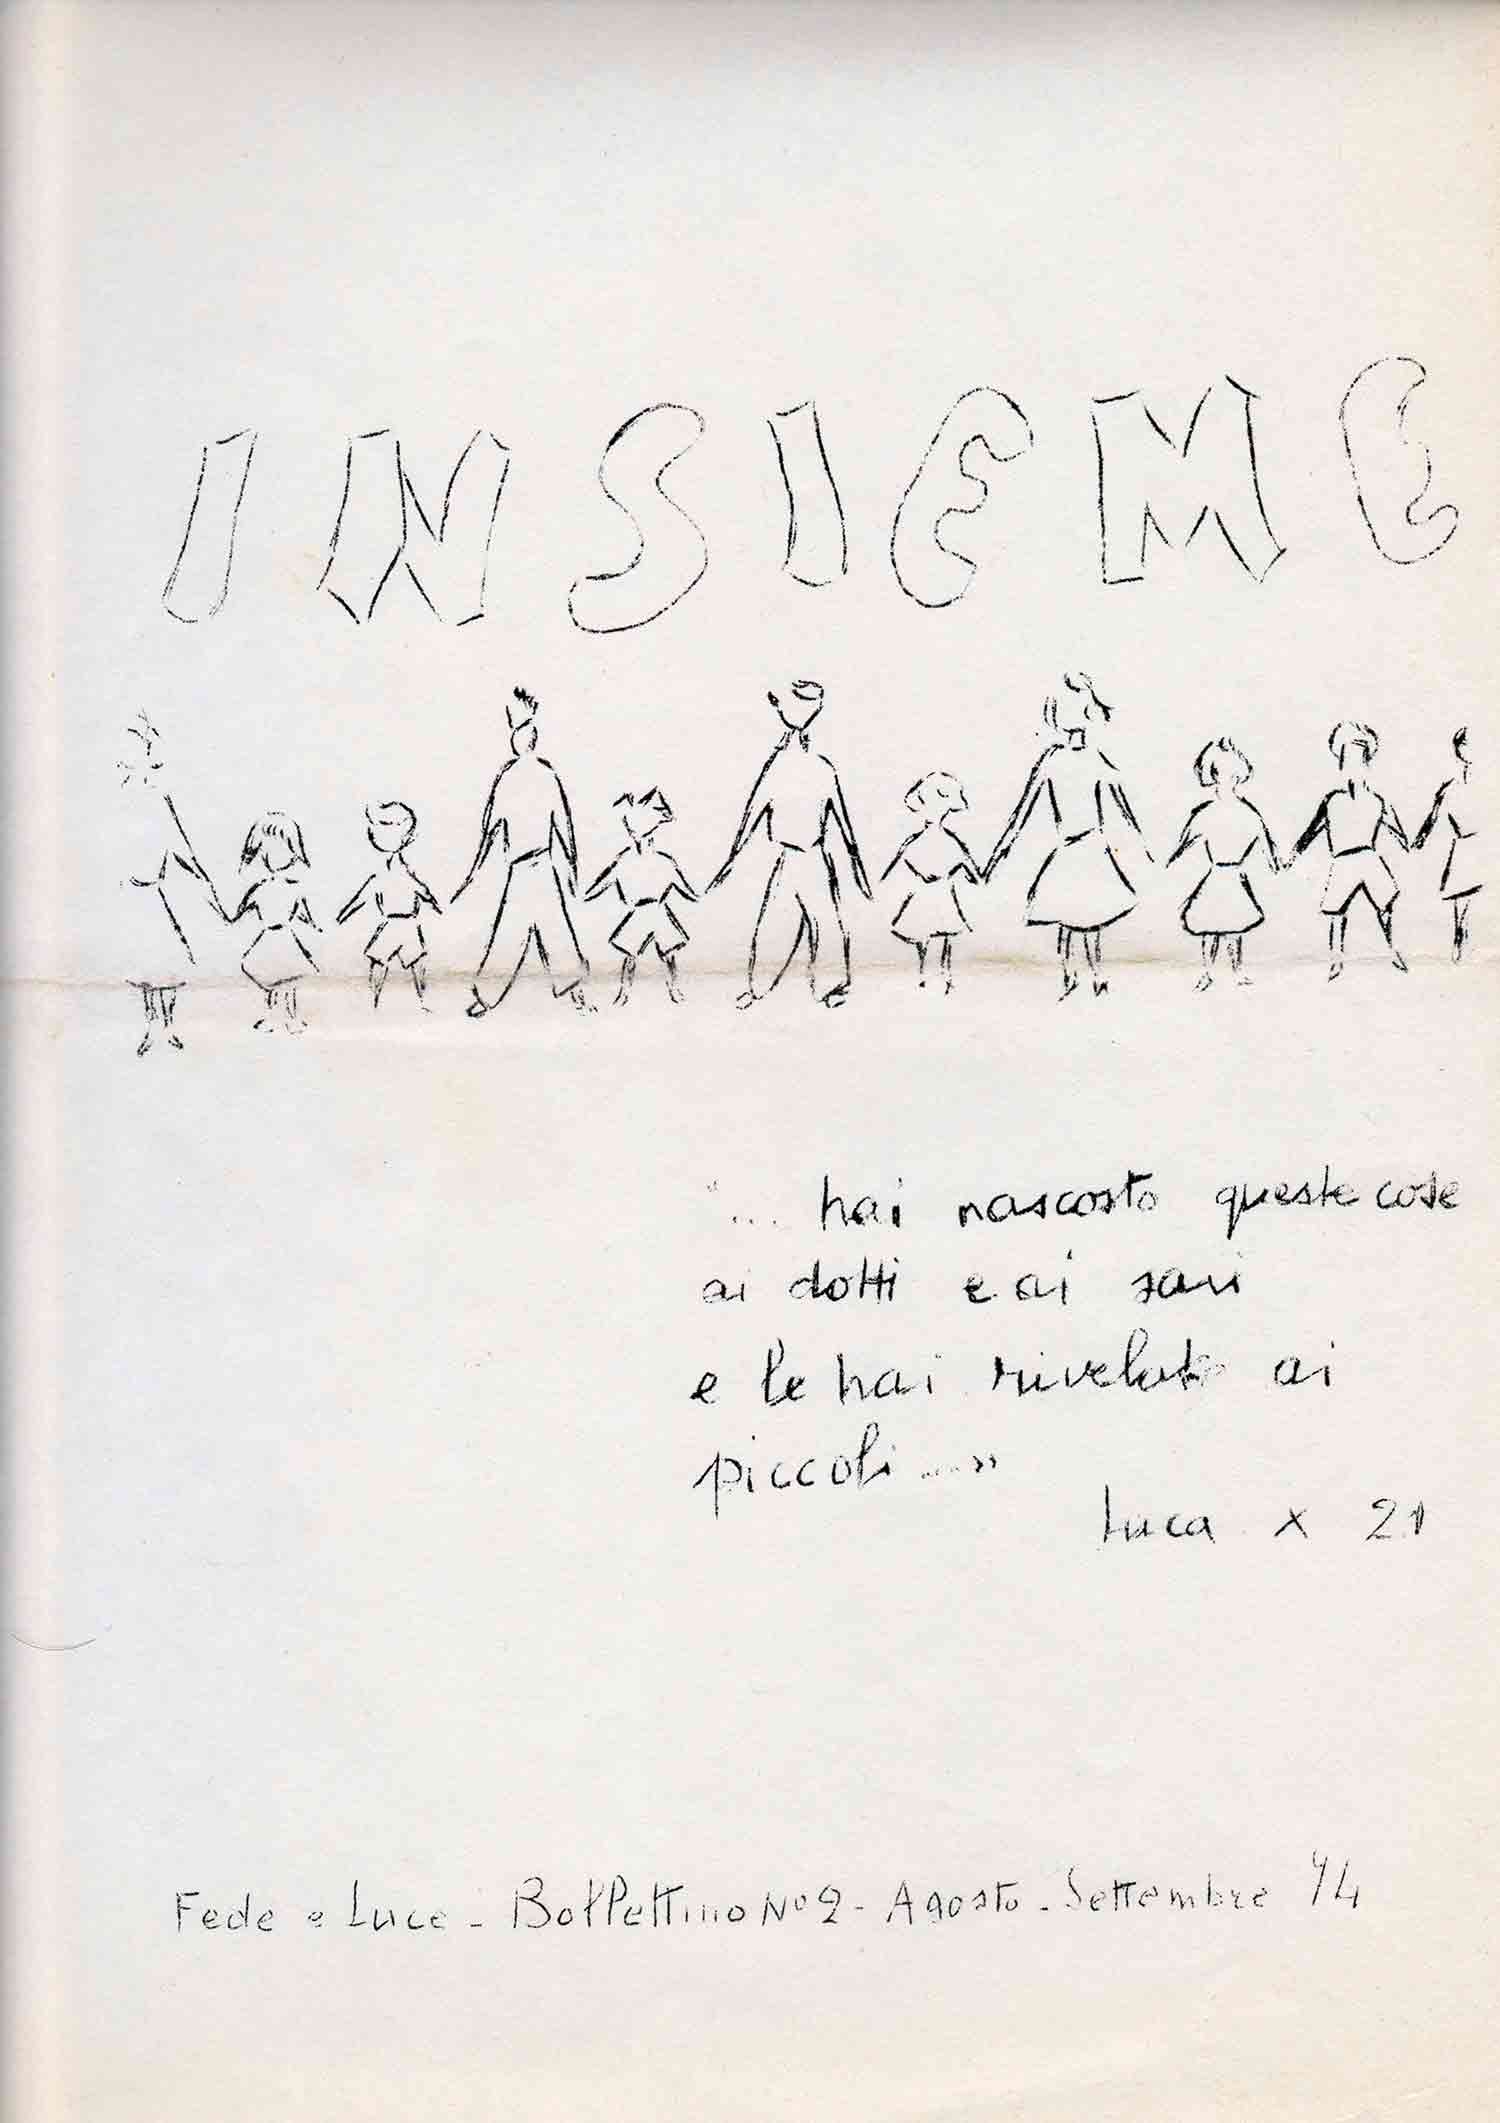 INSIEME
"... hai nascosto queste cose
ai dotti e ai savi
e le hai rivelate ai
piccoli ...."
Luca X 21
Fede e Luce - Bollettino N° 2 - Agosto - Settembre 74